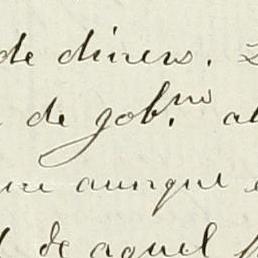 de dinero.
de gob.no al
aunque
de aquel